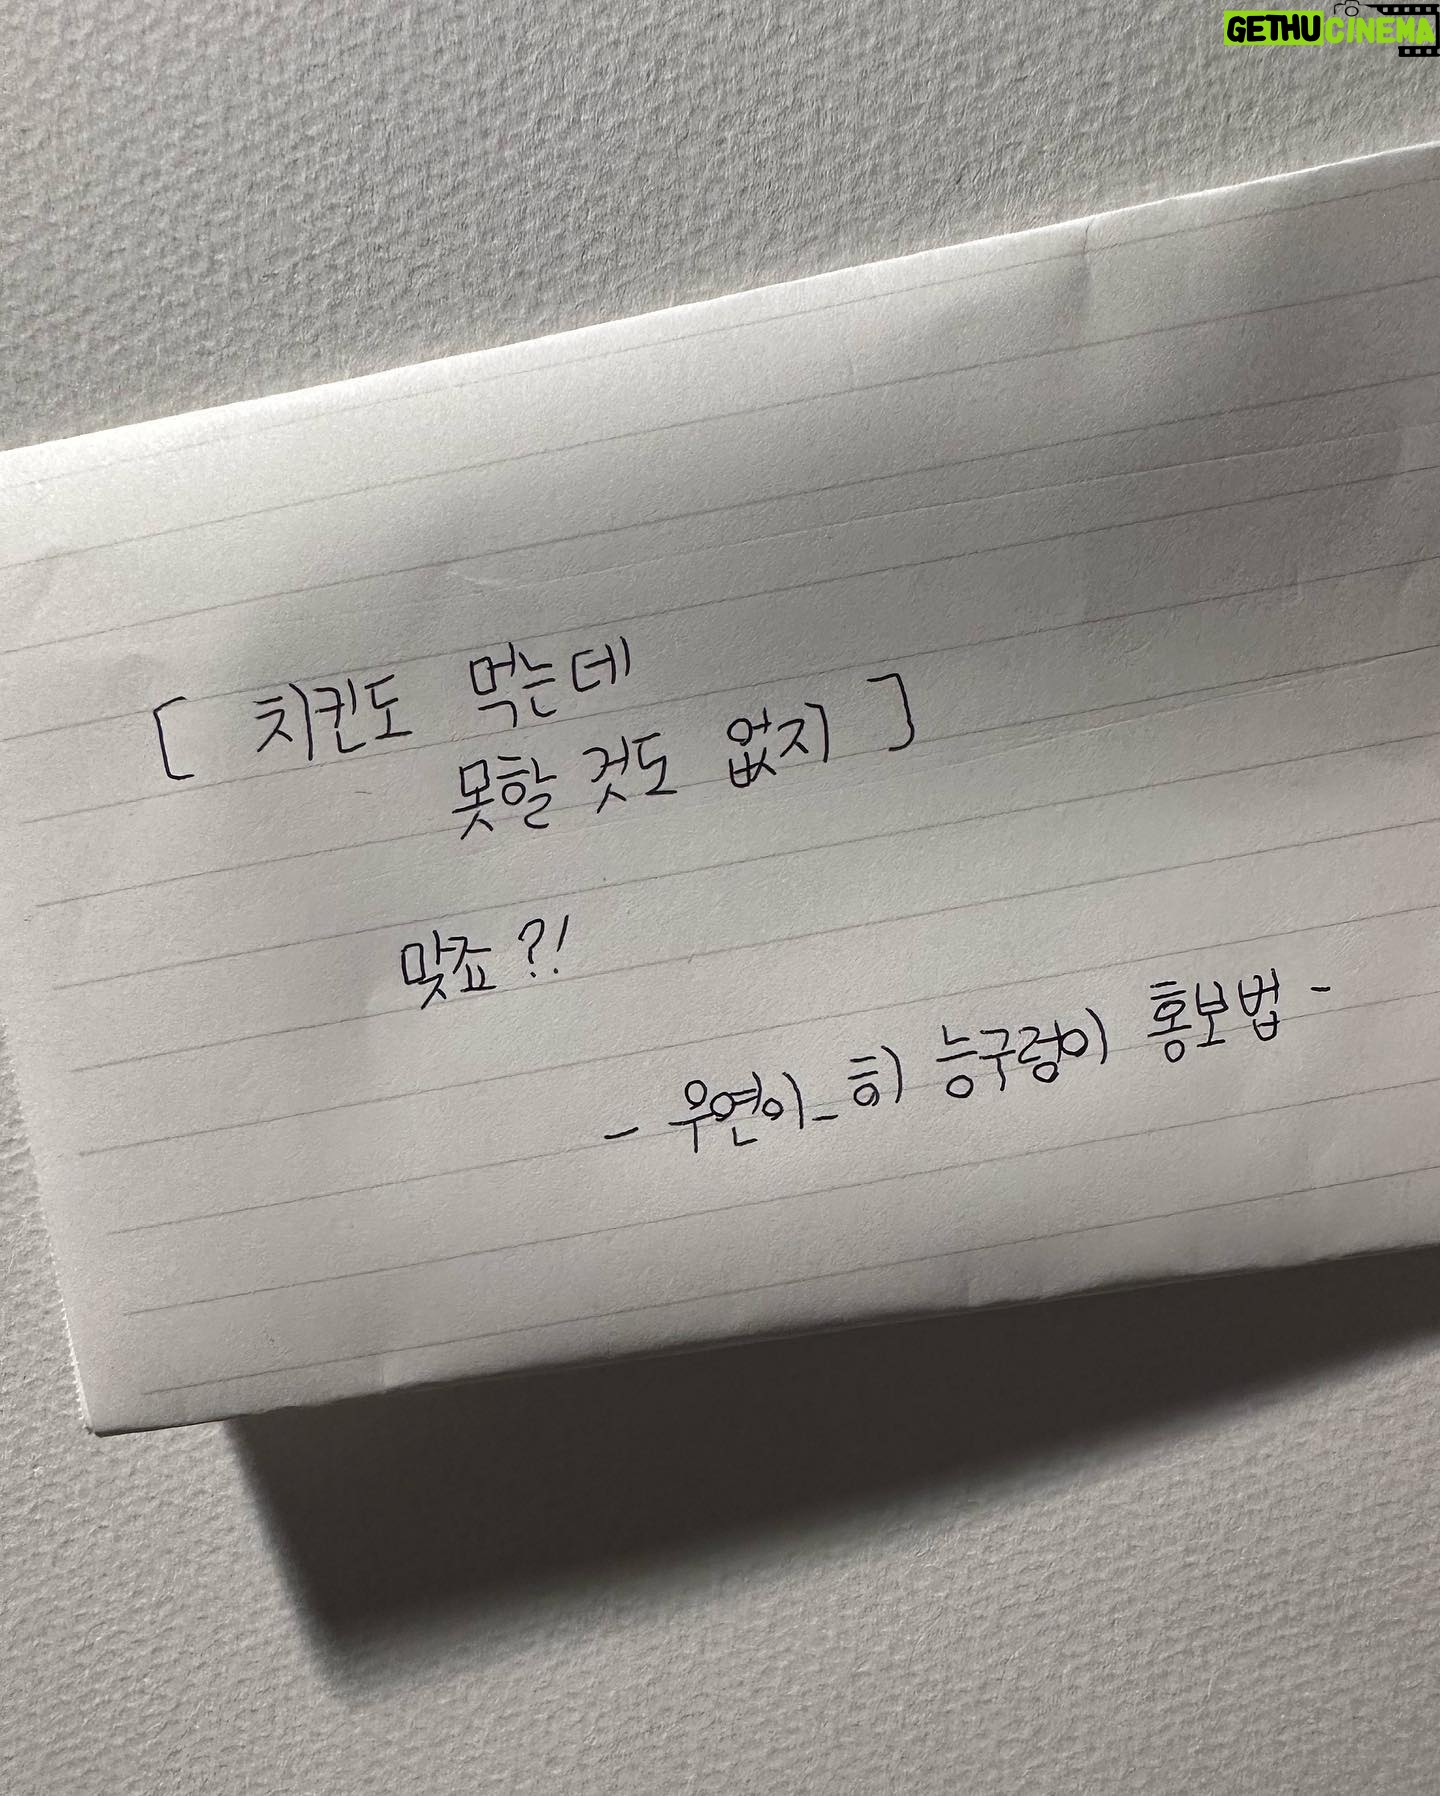 GETHUCINEMA
[ 치킨도 먹는데
못할 것도 없지 ]
맞죠?!
- 우연이_히 능구렁이 홍보법 -